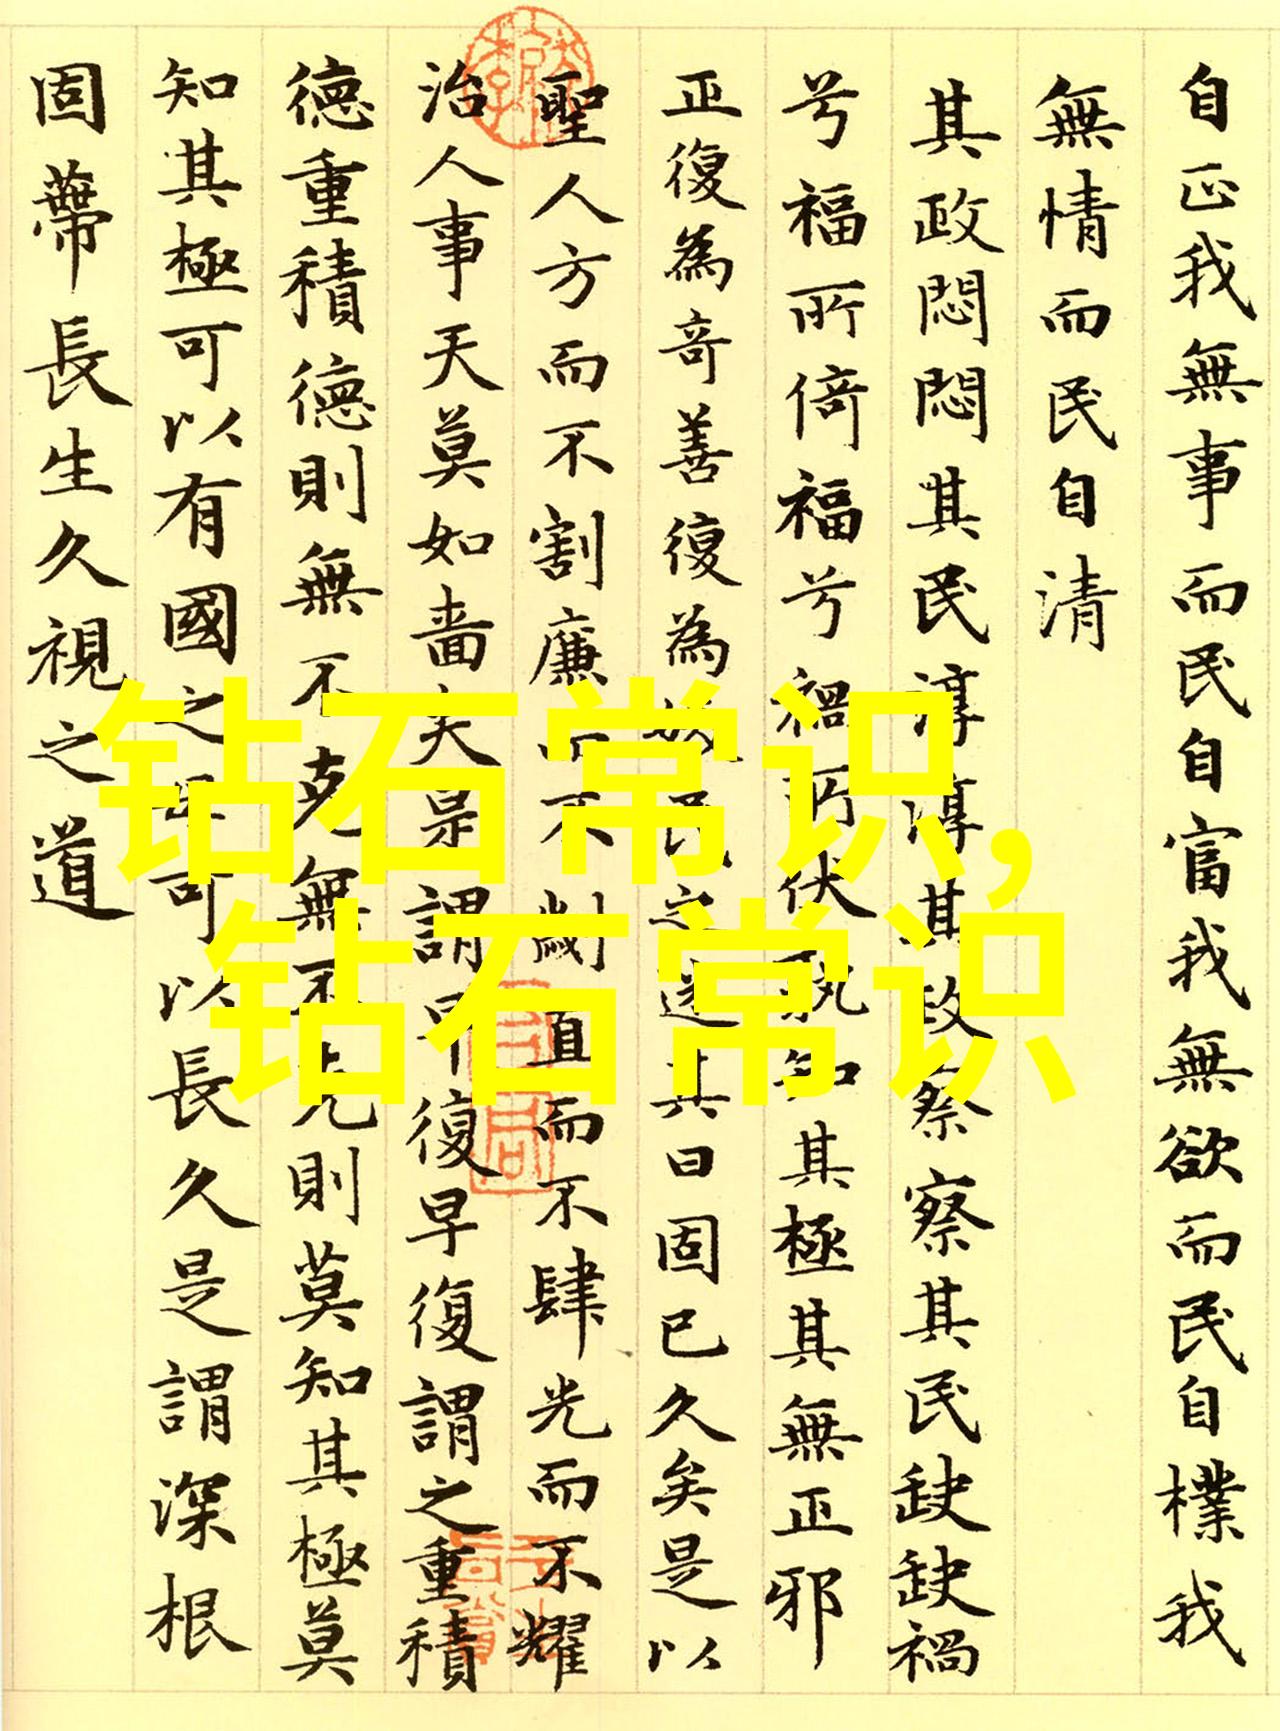 自正我無事而民自富我無欲而民自樸我
無情而民自清
其政悶悶其民淳淳其政察察其民缺缺禍
兮福所倚福兮禍所伏孰知其極其無正邪
正復為奇善復為妖民之迷其日固已久矣是以
聖人方而不割廉而不劌直而不肆光而不耀
治人事天莫如嗇夫是謂早復早復謂之重積
德重積德則無不克無不克則莫知其極莫
知其極可以有國之母可以長久是謂深根
固蔕長生久視之道
钻石常识,
钻石常识